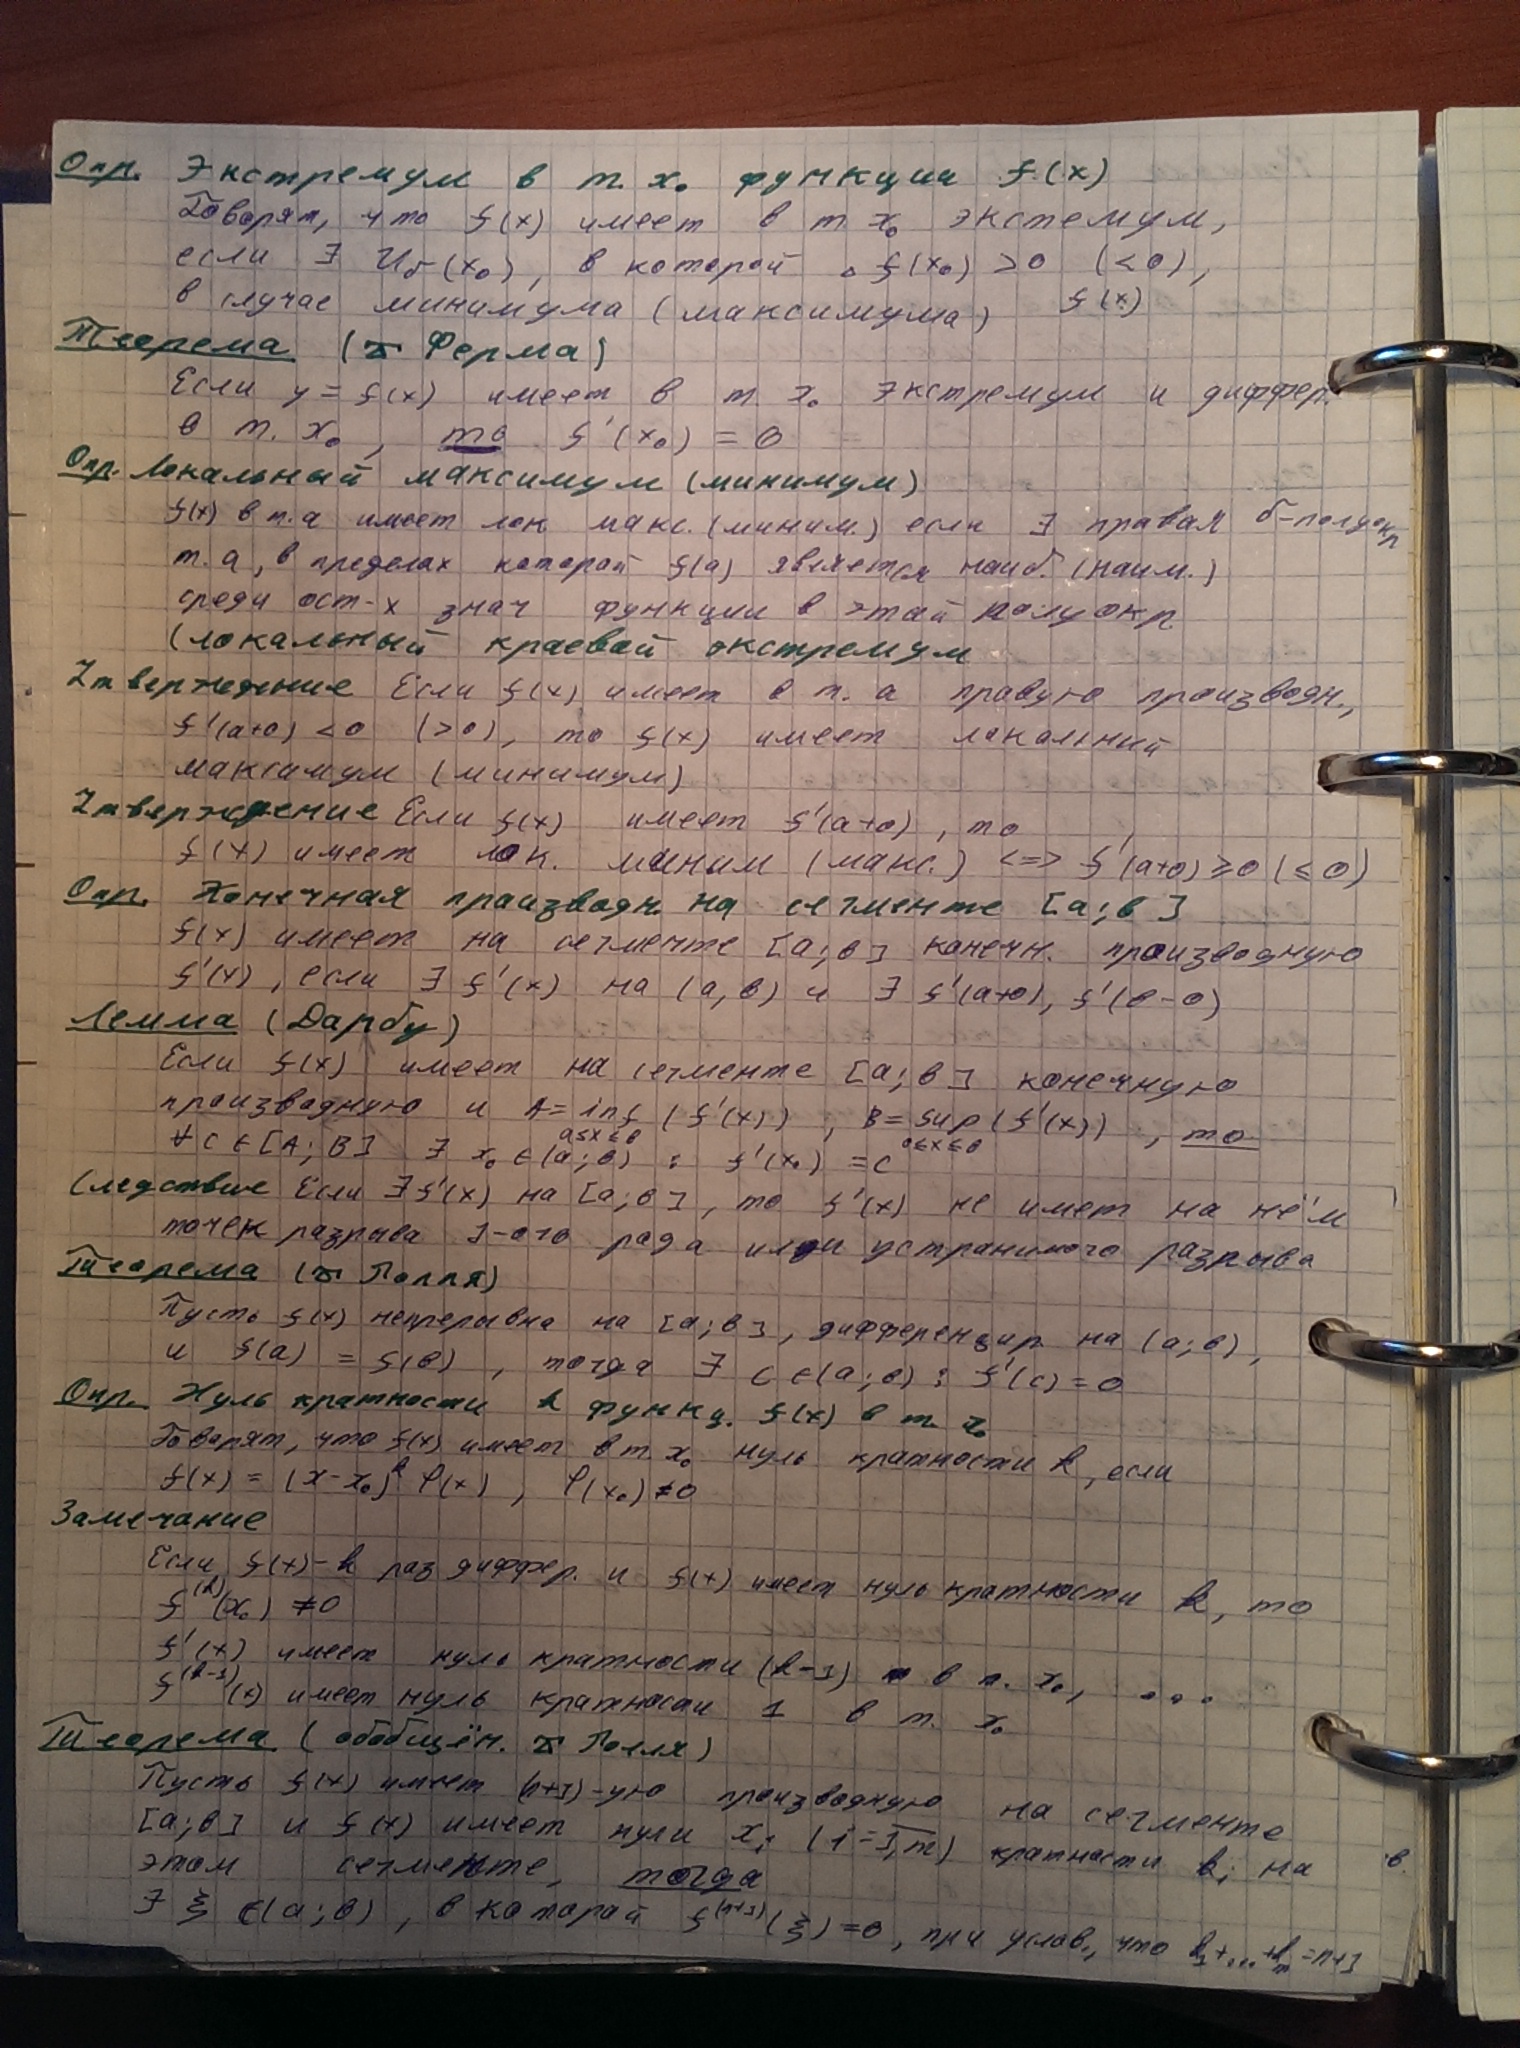 Опр. Экстремум в т. x₀ функции f(x)
Говорят, что f(x) имеет в т. x₀ экстемум,
если ∃ Uδ(x₀), в которой ∆f(x₀) >0 (<0),
в случае минимума (максимума) f(x)
Теорема (т Ферма)
Если y = f(x) имеет в т. x₀ экстремум и диффер.
в т. x₀, то f'(x₀) = 0
Опр. Локальный максимум (минимум)
f(x) в т. a имеет лок макс. (миним.) если ∃ правая δ-полуокр
т. a, в пределах которой f(a) является наиб. (наим.)
среди ост-х знач функции в этой полуокр.
(локальный краевой экстремум
Утверждение Если f(x) имеет в т. a правую производн.,
f'(a+0) <0 (>0), то f(x) имеет локальний
максимум (минимум)
Утверждение Если f(x) имеет f'(a+0), то
f(x) имеет лок. миним (макс.) <=> f'(a+0) ≥0 (≤0)
Опр. Конечная производн. на сегменте [a;b]
f(x) имеет на сегменте [a;b] конечн. производную
f'(x), если ∃ f'(x) на (a,b) и ∃ f'(a+0), f'(b-0)
Лемма (Дарбу)
Если f(x) имеет на сегменте [a;b] конечную
производную и A= inf (f'(x)) ; B= sup (f'(x)), то
a≤x≤b a≤x≤b
∀ C ∈ [A; B] ∃ x₀ ∈(a;b) : f'(x₀) =C
Следствие Если ∃ f'(x) на [a;b], то f'(x) не имет на нём
точек разрыва 1-ого рода или устранимого разрыва
Теорема (т Ролля)
Пусть f(x) непрерывна на [a;b], дифференцир. на (a;b),
и f(a) = f(b), тогда ∃ c ∈(a;b) : f'(c) = 0
Опр. Нуль кратности k функц. f(x) в т. x₀
Говорят, что f(x) имеет в т. x₀ нуль кратности k, если
f(x) = (x-x₀)ᵏ φ(x), φ(x₀) ≠0
Замечание
Если f(x)-k раз диффер. и f(x) имеет нуль кратности k, то
f⁽ᵏ⁾(x₀) ≠0
f'(x) имеет нуль кратности (k-1) в т. x₀, ...
f⁽ᵏ⁻¹⁾(x) имеет нуль кратности 1 в т. x₀
Теорема (обобщён. т Ролля)
Пусть f(x) имеет (n+1)-ую производную на сегменте
[a;b] и f(x) имеет нули xᵢ (i=1,m) кратности kᵢ на
этом сегменте, тогда
∃ ξ ∈(a;b), в которой f⁽ⁿ⁺¹⁾(ξ) =0, при услов., что k₁+...+kₘ =n+1